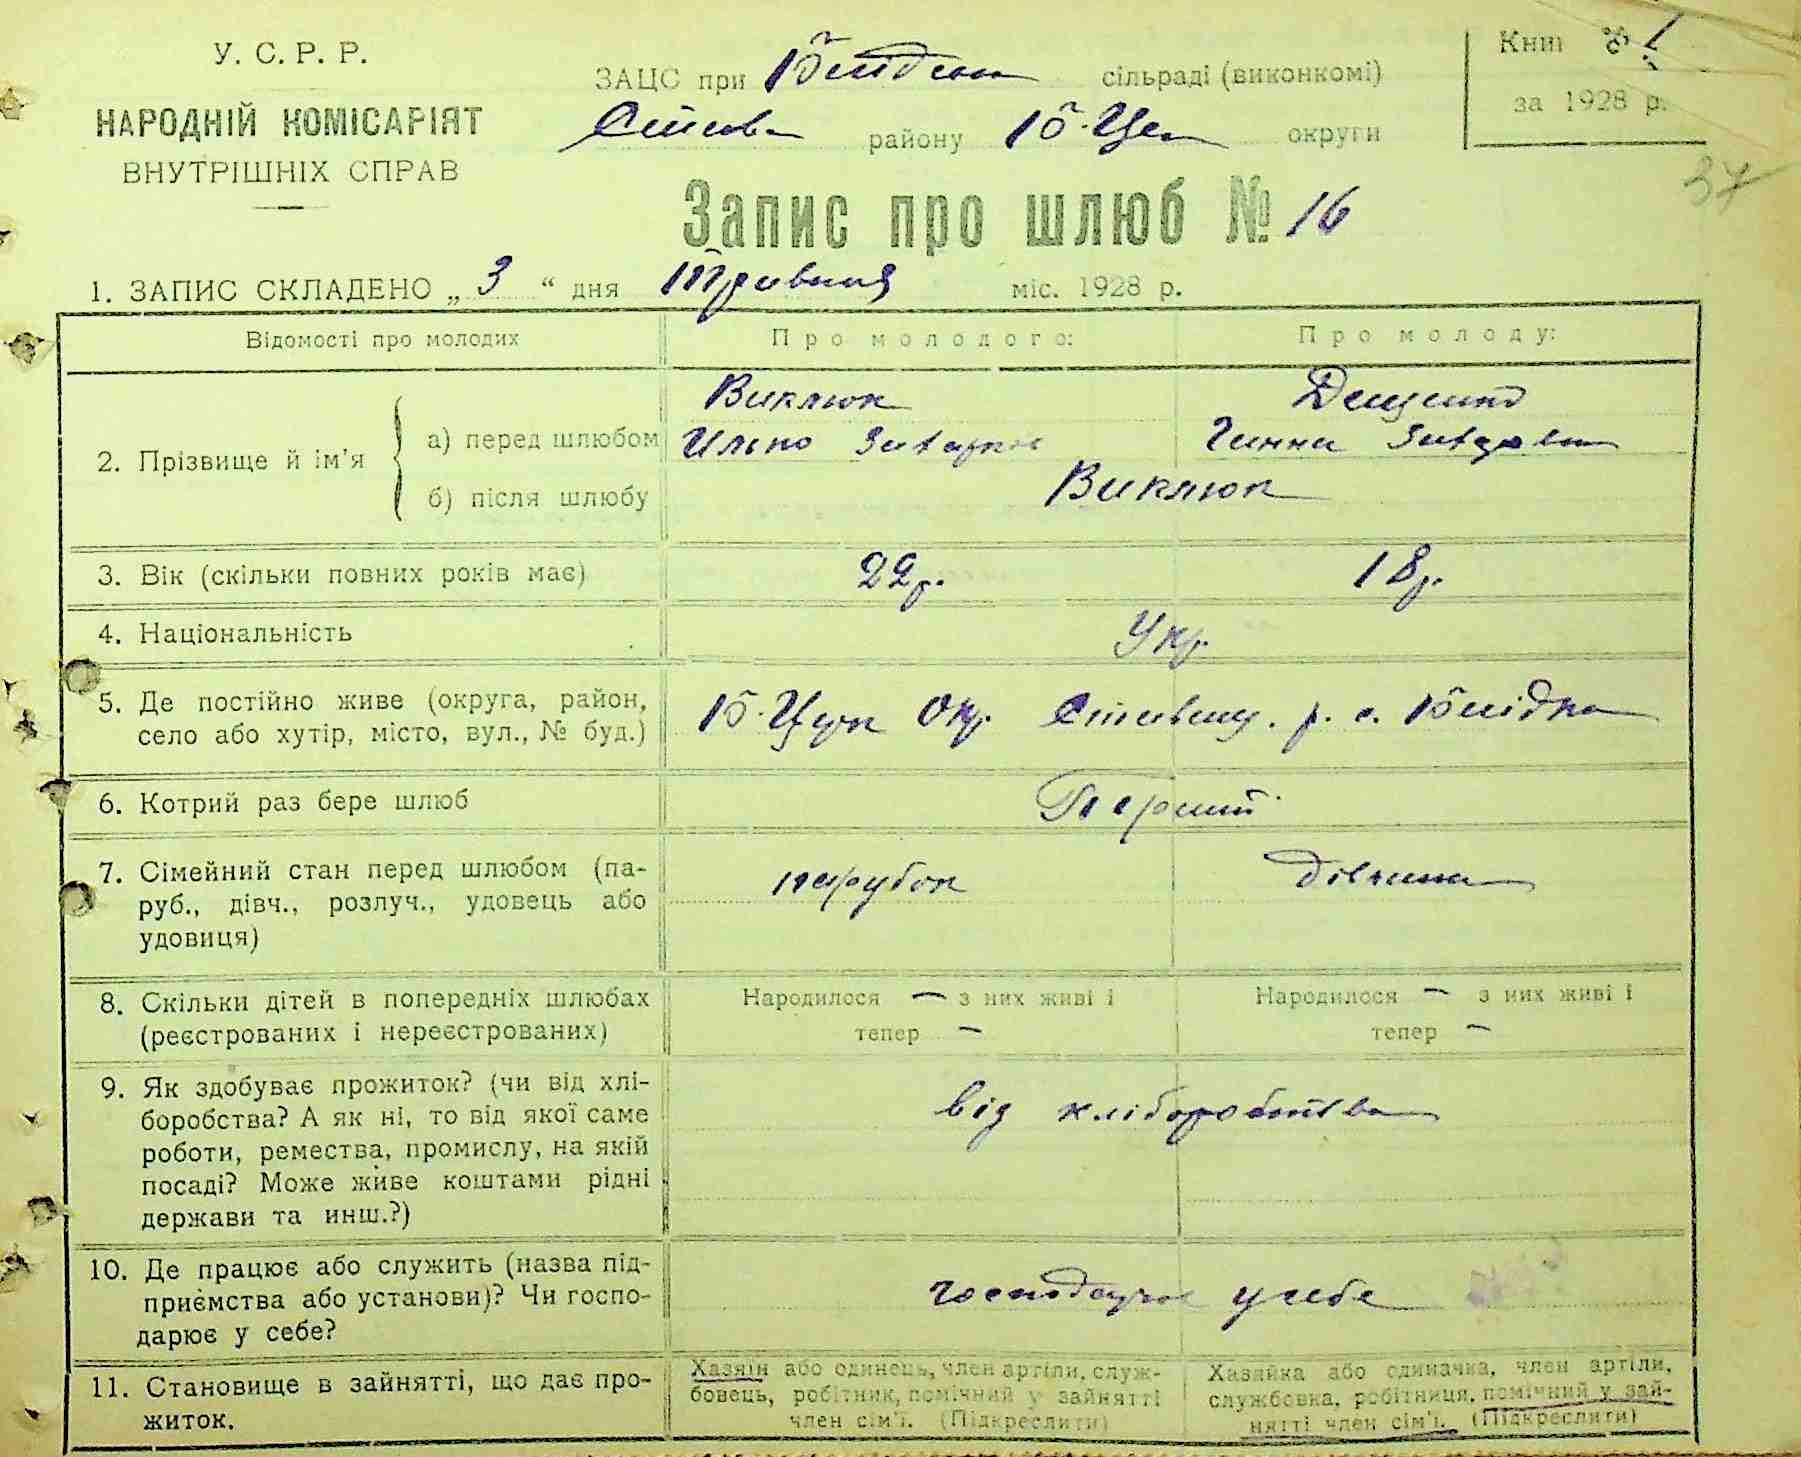 У. С. Р. Р.
НАРОДНІЙ КОМІСАРІЯТ
ВНУТРІШНІХ СПРАВ
ЗАЦС при сільраді (виконкомі)
району Б-Це округи
Книг № 1
за 1928 р.
37
Запис про шлюб № 16
1. ЗАПИС СКЛАДЕНО „ 3 “ дня Травня міс. 1928 р.
Відомості про молодих
Про молодого:
Про молоду:
2. Прізвище й ім'я
а) перед шлюбом
Виклюк
Илько
Дещенко
Ганна
б) після шлюбу
Виклюк
3. Вік (скільки повних років має)
22р.
18р.
4. Національність
Укр.
5. Де постійно живе (округа, район,
село або хутір, місто, вул., № буд.)
Б-Церк Окр. р. с.
6. Котрий раз бере шлюб
Перший
7. Сімейний стан перед шлюбом (па-
руб., дівч., розлуч., удовець або
удовиця)
парубок
дівчина
8. Скільки дітей в попередніх шлюбах
(реєстрованих і нереєстрованих)
Народилося — з них живі і
тепер —
Народилося — з них живі і
тепер —
9. Як здобуває прожиток? (чи від хлі-
боробства? А як ні, то від якої саме
роботи, ремества, промислу, на якій
посаді? Може живе коштами рідні
держави та инш.?)
від хліборобства
10. Де працює або служить (назва під-
приємства або установи)? Чи госпо-
дарює у себе?
господарює у себе
11. Становище в зайнятті, що дає про-
житок.
Хазяїн або одинець, член артіли, служ-
бовець, робітник, помічний у зайнятті
член сім'ї. (Підкреслити)
Хазяйка або одиначка, член артіли,
службовка, робітниця, помічний у зай-
нятті член сім'ї. (Підкреслити)